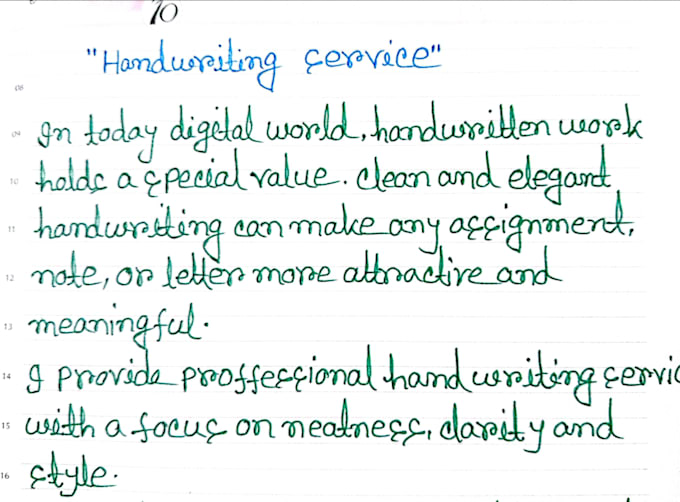 10
"Handwriting service"
08
09 In today digital world, handwritten work
10 holds a special value. clean and elegant
11 handwriting can make any assignment,
12 note, or letter more attractive and
13 meaningful.
14 I provide proffessional handwriting servic
15 with a focus on neatness, clarity and
16 style.